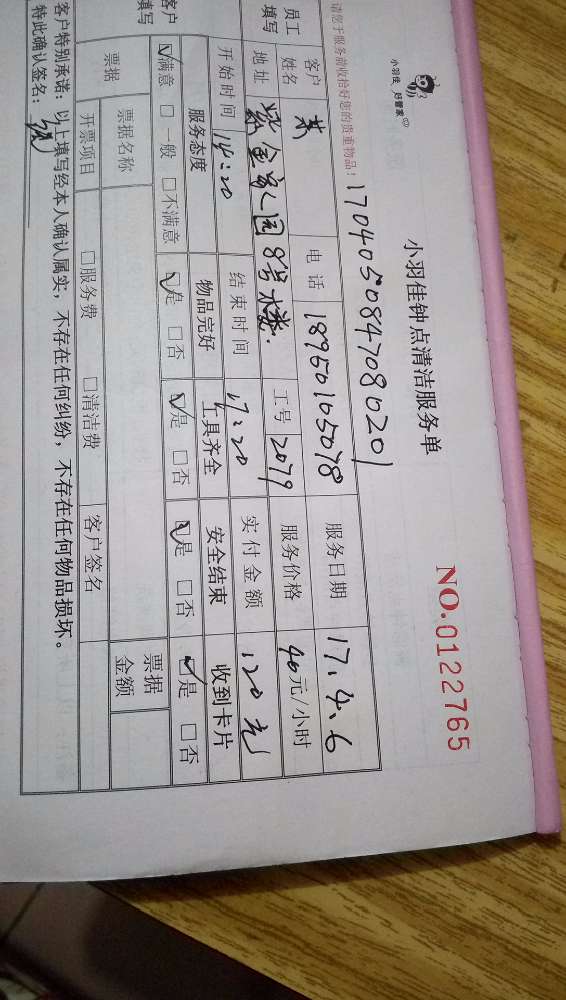 小羽佳 好管家
小羽佳钟点清洁服务单
NO.0122765
请您于服务前收拾好您的贵重物品！
1704050847080201
员工填写 客户姓名 电话 18950165078 服务日期 17.4.6
地址 紫金家园8号楼 工号 2079 服务价格 40元/小时
开始时间 14:20 结束时间 17:20 实付金额 120元
客户填写 服务态度 物品完好 工具齐全 安全结束 收到卡片
☑满意 □一般 □不满意 ☑是 □否 ☑是 □否 ☑是 □否 ☑是 □否
票据 票据名称 票据金额
开票项目 □服务费 □清洁费 客户签名
客户特别承诺：以上填写经本人确认属实，不存在任何纠纷，不存在任何物品损坏。
特此确认签名：